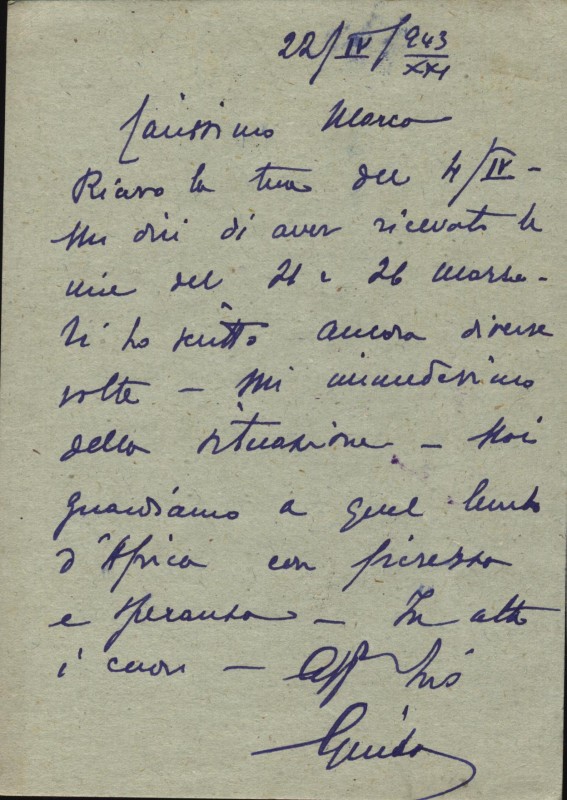 22/IV/943
XXI
Carissimo Marco
Ricevo la tua del 4/IV -
Mi dici di aver ricevuto le
mie del 21 e 26 marzo -
Ti ho scritto ancora diverse
volte - Mi
della situazione - Noi
guardiamo a quel lembo
d'Africa con fierezza
e speranza - In alto
i cuori - Aff
Guido